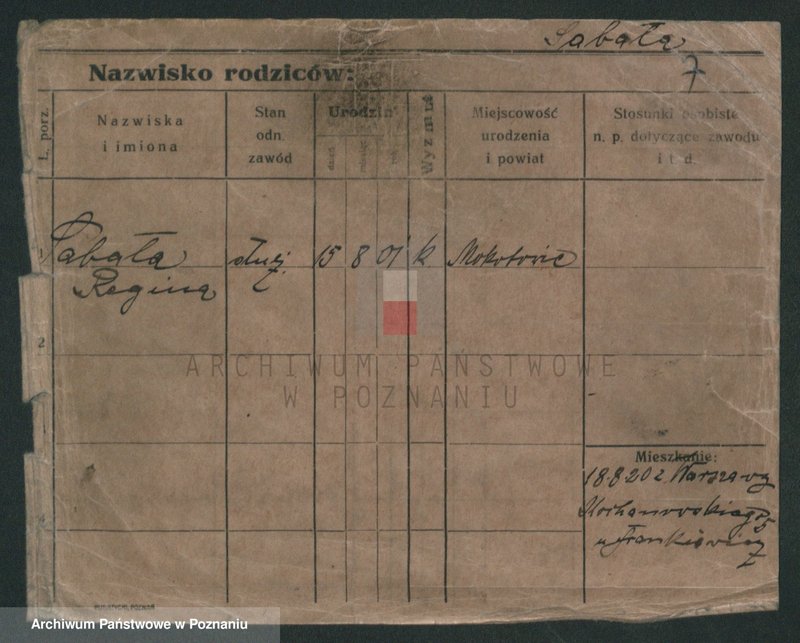 Sabała
7
Nazwisko rodziców:
L. porz.
Nazwiska
i imiona
Stan
odn.
zawód
Urodzin
dzień
miesiąc
rok
Wyznanie
Miejscowość
urodzenia
i powiat
Stosunki osobiste
n. p. dotyczące zawodu
i t. d.
1
Sabała
Regina
służ.
15
8
01
k
Mokotovie
2
ARCHIWUM PAŃSTWOWE
W POZNANIU
4
Mieszkanie:
18.8.20 z Warszawy
Kochanowskiego 5
u Frankiewicz
PUŁATYCKI, POZNAŃ
Archiwum Państwowe w Poznaniu